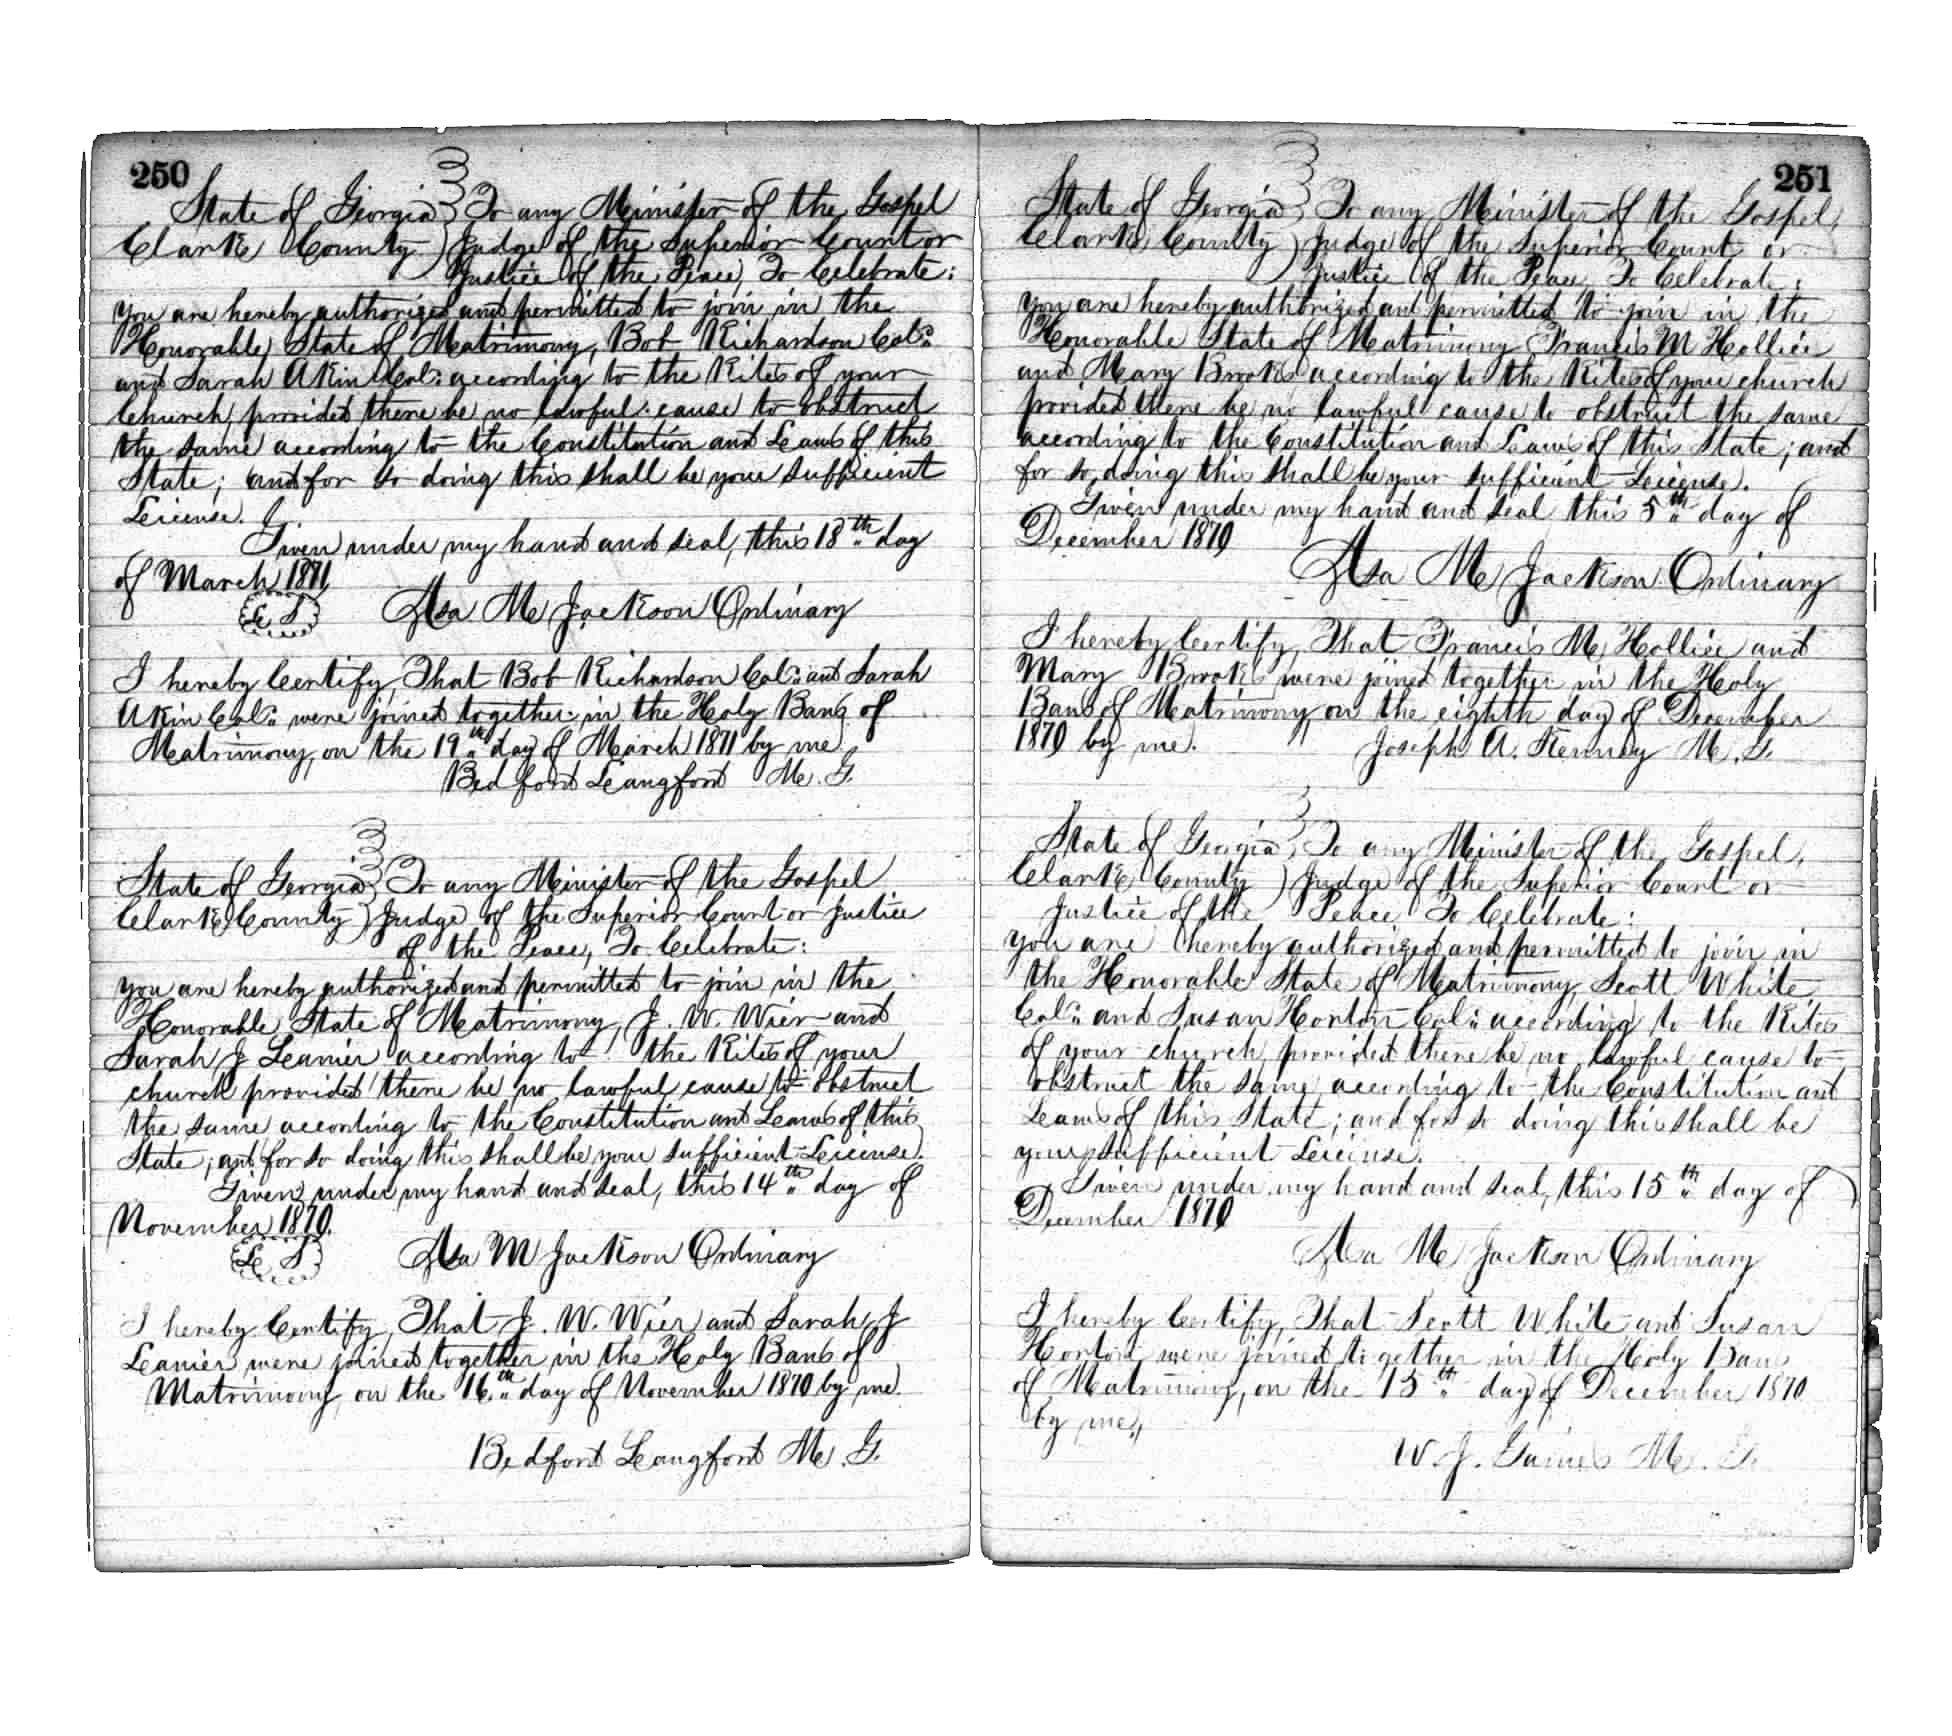 250
State of Georgia } To any Minister of the Gospel
Clark County } Judge of the Superior Court or
Justice of the Peace, To Celebrate:
You are hereby authorized and permitted to join in the
Honorable State of Matrimony, Bob Richardson Cold
and Sarah Akin Cold according to the Rites of your
Church, provided there be no lawful cause to obstruct
the same according to the Constitution and Laws of this
State; and for so doing this shall be your sufficient
License.
Given under my hand and seal, this 18th day
of March 1871
L S Asa M Jackson Ordinary
I hereby Certify, That Bob Richardson Cold and Sarah
Akin Cold were joined together in the Holy Bans of
Matrimony, on the 19th day of March 1871 by me
Bedford Langford M. G.
State of Georgia } To any Minister of the Gospel
Clark County } Judge of the Superior Court or Justice
of the Peace, To Celebrate:
You are hereby authorized and permitted to join in the
Honorable State of Matrimony, J. W. Wier and
Sarah J Lanier according to the Rites of your
church provided there be no lawful cause to obstruct
the same according to the Constitution and Laws of this
State; and for so doing this shall be your sufficient License.
Given under my hand and seal, this 14th day of
November 1870.
L S Asa M Jackson Ordinary
I hereby Certify, That J. W. Wier and Sarah J
Lanier were joined together in the Holy Bans of
Matrimony, on the 16th day of November 1870 by me.
Bedford Langford M. G.
251
State of Georgia } To any Minister of the Gospel,
Clark County } Judge of the Superior Court or
Justice of the Peace, To Celebrate:
You are hereby authorized and permitted to join in the
Honorable State of Matrimony Francis M Hollice
and Mary Brooks according to the Rites of your church
provided there be no lawful cause to obstruct the same
according to the Constitution and Laws of this State; and
for so doing this shall be your sufficient License.
Given under my hand and seal this 5th day of
December 1870
Asa M Jackson Ordinary
I hereby Certify, That Francis M Hollice and
Mary Brooks were joined together in the Holy
Bans of Matrimony, on the eighth day of December
1870 by me. Joseph A. Kenney M. G.
State of Georgia } To any Minister of the Gospel,
Clark County } Judge of the Superior Court or
Justice of the Peace To Celebrate:
You are hereby authorized and permitted to join in
the Honorable State of Matrimony, Scott White
Cold and Susan Horton Cold according to the Rites
of your church, provided there be no lawful cause to
obstruct the same, according to the Constitution and
Laws of this State; and for so doing this shall be
your sufficient License.
Given under my hand and seal, this 15th day of
December 1870
Asa M Jackson Ordinary
I hereby Certify, That Scott White and Susan
Horton were joined together in the Holy Bans
of Matrimony, on the 15th day of December 1870
by me,
W. J. Gaines M. G.